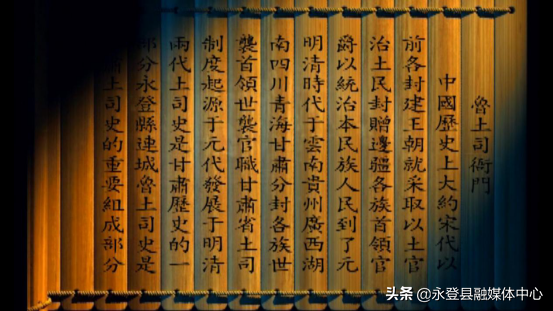 魯土司衙門
中國歷史上大約宋代以
前各封建王朝就采取以土官
治土民封贈邊疆各族首領官
爵以統治本民族人民到了元
明清時代于雲南貴州廣西湖
南四川青海甘肅分封各族世
襲首領世襲官職甘肅省土司
制度起源于元代發展于明清
兩代土司史是甘肅歷史的一
部分永登縣連城魯土司史是
土司史的重要組成部分
头条 @永登县融媒体中心